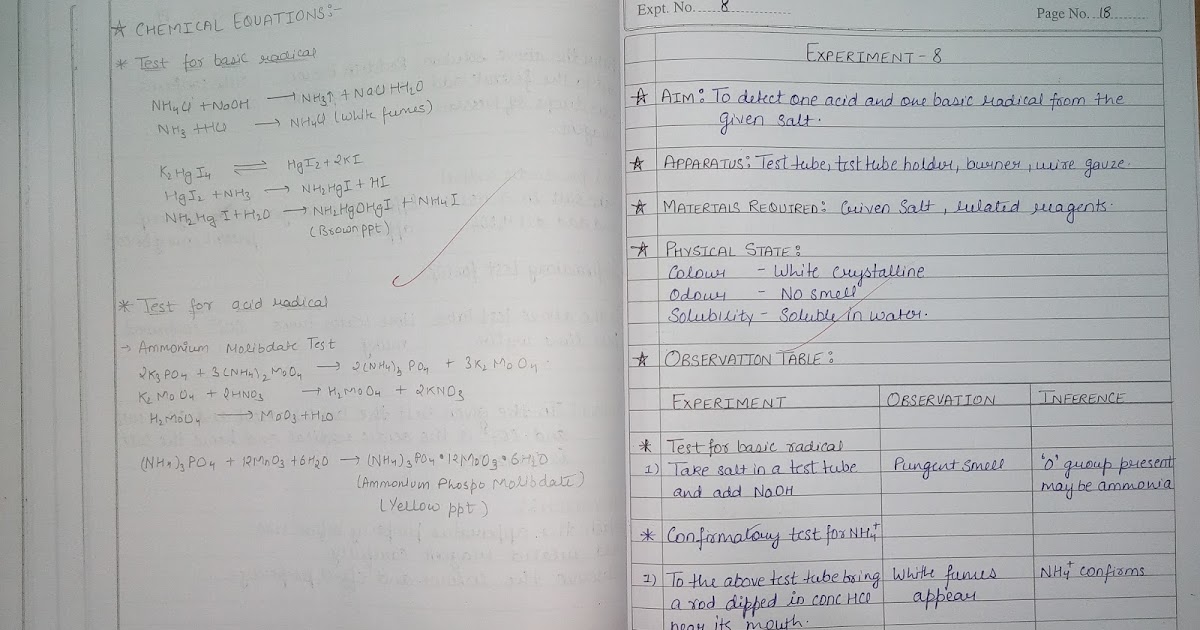 ☆ CHEMICAL EQUATIONS:-
* Test for basic radical
NH4Cl + NaOH → NH3↑ + NaCl + H2O
NH3 + HCl → NH4Cl (White fumes)
K2HgI4 ⇌ HgI2 + 2KI
HgI2 + NH3 → NH2HgI + HI
NH2HgI + H2O → NH2HgOHgI + NH4I
(Brown ppt)
* Test for acid radical
→ Ammonium Molibdate Test
2K3PO4 + 3(NH4)2MoO4 → 2(NH4)3PO4 + 3K2MoO4
K2MoO4 + 2HNO3 → H2MoO4 + 2KNO3
H2MoO4 → MoO3 + H2O
(NH4)3PO4 + 12MnO3 + 6H2O → (NH4)3PO4•12MoO3•6H2O
(Ammonium Phospo Molibdate)
(Yellow ppt)
Expt. No. 8
Page No. 18
EXPERIMENT - 8
☆ AIM: To detect one acid and one basic radical from the
given salt.
☆ APPARATUS: Test tube, test tube holder, burner, wire gauze.
☆ MATERIALS REQUIRED: Given Salt, related reagents.
☆ PHYSICAL STATE:
Colour - White crystalline
Odour - No smell
Solubility - Soluble in water.
☆ OBSERVATION TABLE:
EXPERIMENT OBSERVATION INFERENCE
* Test for basic radical
1) Take salt in a test tube Pungent smell 'O' group present
and add NaOH maybe ammonia
* Confirmatory test for NH4+
1) To the above test tube bring White fumes NH4+ confirms
a rod dipped in conc HCl appear
near its mouth.